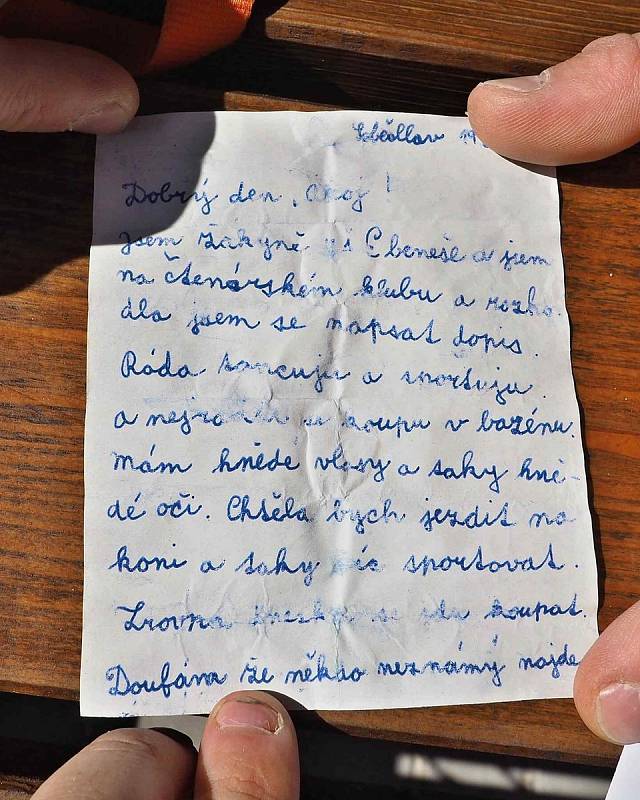 Soběslav 19
Dobrý den, ahoj!
jsem žákyně zš E beneše a jsem
na čtenářském klubu a rozho-
dla jsem se napsat dopis.
Ráda tancuju a sportuju.
a nejradši se koupu v bazénu.
mám hněde vlasy a taky hně-
dé oči. Chtěla bych jezdit na
koni a taky víc sportovat.
Zrovna dneska se jdu koupat.
Doufám že někdo neznámý najde